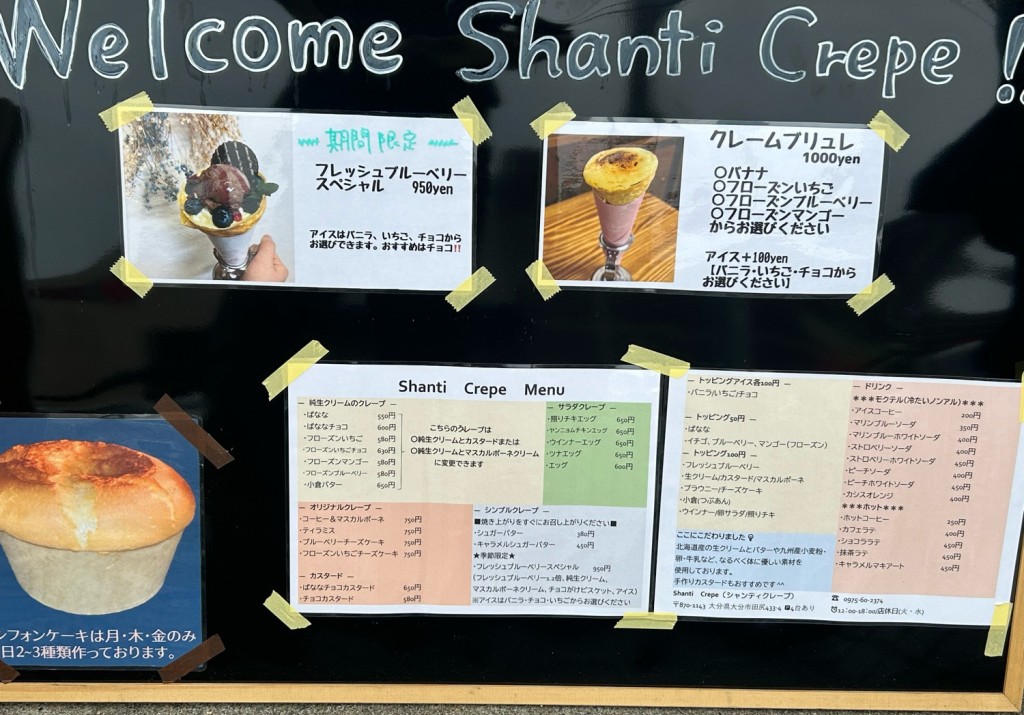 Welcome Shanti Crepe!!
期間限定
フレッシュブルーベリー
スペシャル 950yen
アイスはバニラ、いちご、チョコから
お選びできます。おすすめはチョコ!!
クレームブリュレ
1000yen
○バナナ
○フローズンいちご
○フローズンブルーベリー
○フローズンマンゴー
からお選びください
アイス+100yen
【バニラ・いちご・チョコから
お選びください】
Shanti Crepe Menu
― 純生クリームのクレープ ―
・ばなな 550円
・ばななチョコ 600円
・フローズンいちご 580円
・フローズンいちごチョコ 630円
・フローズンマンゴー 580円
・フローズンブルーベリー 580円
・小倉バター 650円
こちらのクレープは
○純生クリームとカスタードまたは
○純生クリームとマスカルポーネクリーム
に変更できます
― サラダクレープ ―
・照りチキエッグ 650円
・ヤンニョムチキンエッグ 650円
・ウインナーエッグ 650円
・ツナエッグ 650円
・エッグ 600円
― オリジナルクレープ ―
・コーヒー&マスカルポーネ 750円
・ティラミス 750円
・ブルーベリーチーズケーキ 750円
・フローズンいちごチーズケーキ 750円
― カスタード ―
・ばななチョコカスタード 650円
・チョコカスタード 580円
― シンプルクレープ ―
■焼き上がりをすぐにお召し上がりください■
・シュガーバター 380円
・キャラメルシュガーバター 450円
★季節限定★
・フレッシュブルーベリースペシャル 950円
(フレッシュブルーベリー1.2倍、純生クリーム、
マスカルポーネクリーム、チョコがけビスケット、アイス)
※アイスはバニラ・チョコ・いちごからお選びください
― トッピングアイス各100円 ―
・バニラ/いちご/チョコ
― トッピング50円 ―
・ばなな
・イチゴ、ブルーベリー、マンゴー(フローズン)
― トッピング100円 ―
・フレッシュブルーベリー
・生クリーム/カスタード/マスカルポーネ
・ブラウニー/チーズケーキ
・小倉(つぶあん)
・ウインナー/卵サラダ/照りチキ
― ドリンク ―
***モクテル(冷たいノンアル)***
・アイスコーヒー 200円
・マリンブルーソーダ 350円
・マリンブルーホワイトソーダ 400円
・ストロベリーソーダ 400円
・ストロベリーホワイトソーダ 450円
・ピーチソーダ 400円
・ピーチホワイトソーダ 450円
・カシスオレンジ 400円
***ホット***
・ホットコーヒー 250円
・カフェラテ 400円
・ショコララテ 450円
・抹茶ラテ 450円
・キャラメルマキアート 450円
ここにこだわりました
北海道産の生クリームとバターや九州産小麦粉・
卵・牛乳など、なるべく体に優しい素材を
使用しております。
手作りカスタードもおすすめです^^
Shanti Crepe(シャンティクレープ)
〒870-1143 大分県大分市田尻433-4 P4台あり
☎ 0975-60-2374
12:00-18:00/店休日(火・水)
ンフォンケーキは月・木・金のみ
日2~3種類作っております。